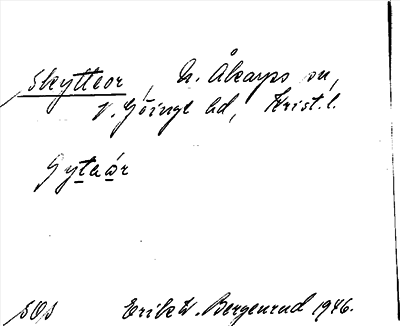 Skytteor, N. Åkarps sn,
V. Göinge hd, Krist. l.
Gytaår
SOs Erik W. Bergenrud 1946.